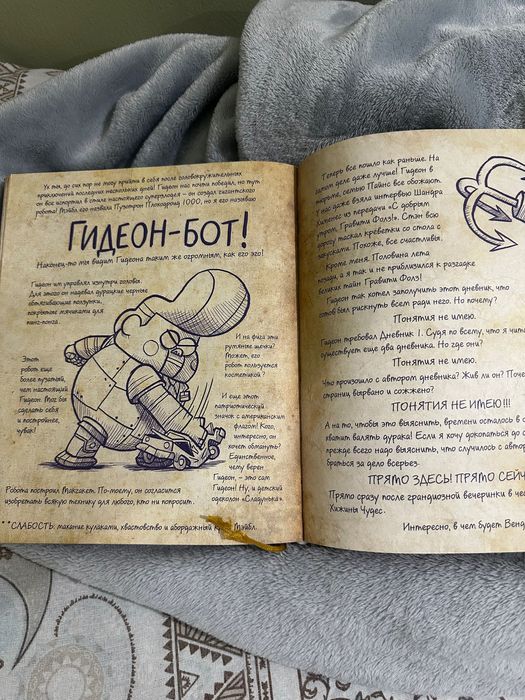 Ух ты, до сих пор не могу прийти в себя после головокружительных
приключений последних нескольких дней! Гидеон нас почти победил, но тут
он все испортил в стиле настоящего суперзлодея – он создал гигантского
робота! Мэйбл его назвала Пузотрон Плохадроид 1000, но я его называю
ГИДЕОН-БОТ!
Наконец-то мы видим Гидеона таким же огромным, как его эго!
Гидеон им управлял изнутри головы.
Для этого он надевал дурацкие черные
обтягивающие ползунки,
покрытые мячиками для
пинг-понга.
И на фига эти
румяные щечки?
Может, его
робот пользуется
косметикой?
Этот
робот еще
более пузатый,
чем настоящий
Гидеон. Мог бы
сделать себя
и постройнее,
чувак!
И еще этот
патриотический
значок с американским
флагом! Кого,
интересно, он
хочет обмануть?
Единственное,
чему верен
Гидеон, – это сам
Гидеон! Ну, и детский
одеколон «Сладунька».
Робота построил Макгакет. По-моему, он согласится
изобретать всякую технику для любого, кто ни попросит.
**СЛАБОСТЬ: махание кулаками, хвастовство и абордажный Мэйбл.
Теперь все пошло как раньше. На
самом деле даже лучше! Гидеон в
тюрьме, семью Пайнс все обожают.
У нас даже взяли интервью Шандра
Хименес из передачи «С добрым
утром, Гравити Фолз!». Стэн всю
дорогу таскал креветки со стола с
закусками. Похоже, все счастливы.
Кроме меня. Половина лета
позади, а я так и не приблизился к разгадке
великих тайн Гравити Фолз!
Гидеон так хотел заполучить этот дневник, что
готов был рискнуть всем ради него. Но почему?
Понятия не имею.
Гидеон требовал Дневник 1. Судя по всему, что я
существует еще два дневника. Но где они?
Понятия не имею.
Что произошло с автором дневника? Жив ли он?
страниц вырвано и сожжено?
ПОНЯТИЯ НЕ ИМЕЮ!!!
А на то, чтобы это выяснить, времени осталось
хватит валять дурака! Если я хочу докопаться до
прежде всего надо выяснить, что случилось с
браться за дело всерьез.
ПРЯМО ЗДЕСЬ! ПРЯМО
Прямо сразу после грандиозной вечеринки в
Хижины Чудес.
Интересно, в чем будет